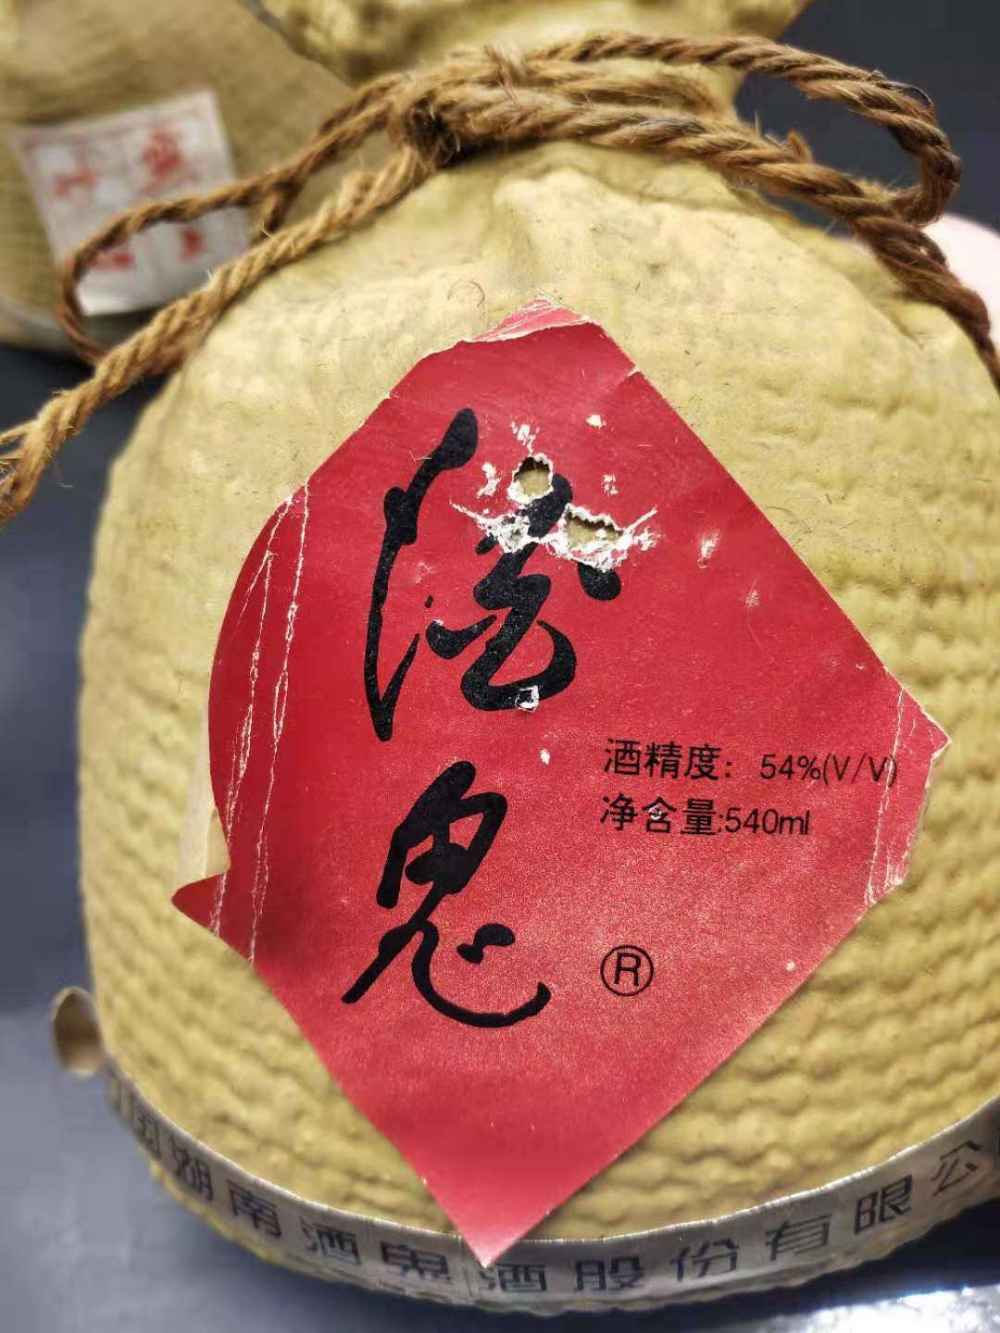 酒
鬼
酒精度：54%(V/V)
净含量:540ml
®
湖南酒鬼酒股份有限公